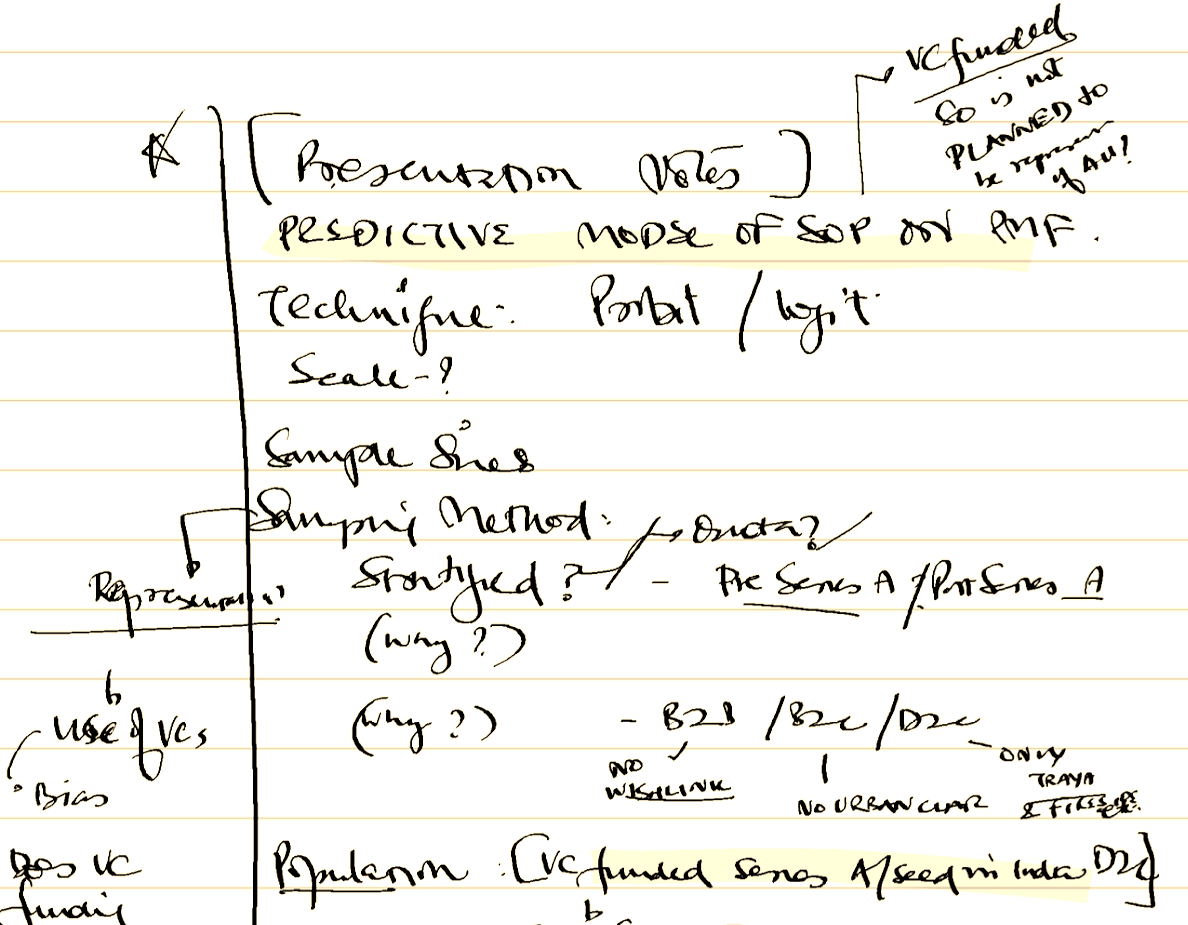 VC funded
So is not
PLANNED to
be represen
of All?
[Presentation Notes]
PREDICTIVE MODEL OF SOP ON PMF.
Technique: Probit / logit
Scale - ?
Sample Sizes
Sampling Method: Quota?
Representation
Stratified? - Pre Series A / Post Series A
(Why?)
Use of VCs
(Why?) - B2B / B2C / D2C
Bias
NO WISHLINK
NO URBAN CLAP
ONLY TRAYA
Does VC
funding
Population: [VC funded series A/seed in India D2C]